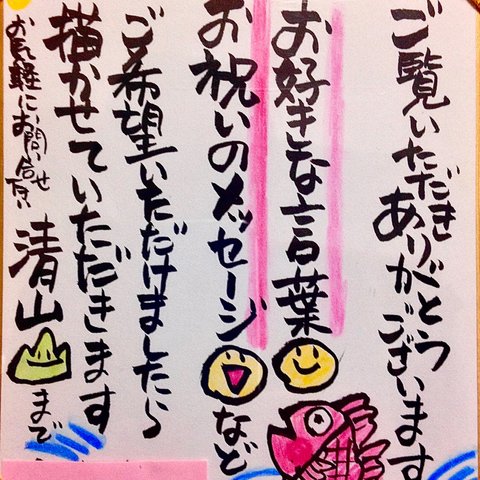 ご覧いただき
ありがとうございます
お好きな言葉
お祝いのメッセージなど
ご希望いただけましたら
描かせていただきます
お気軽にお問い合せ下さい
清山まで